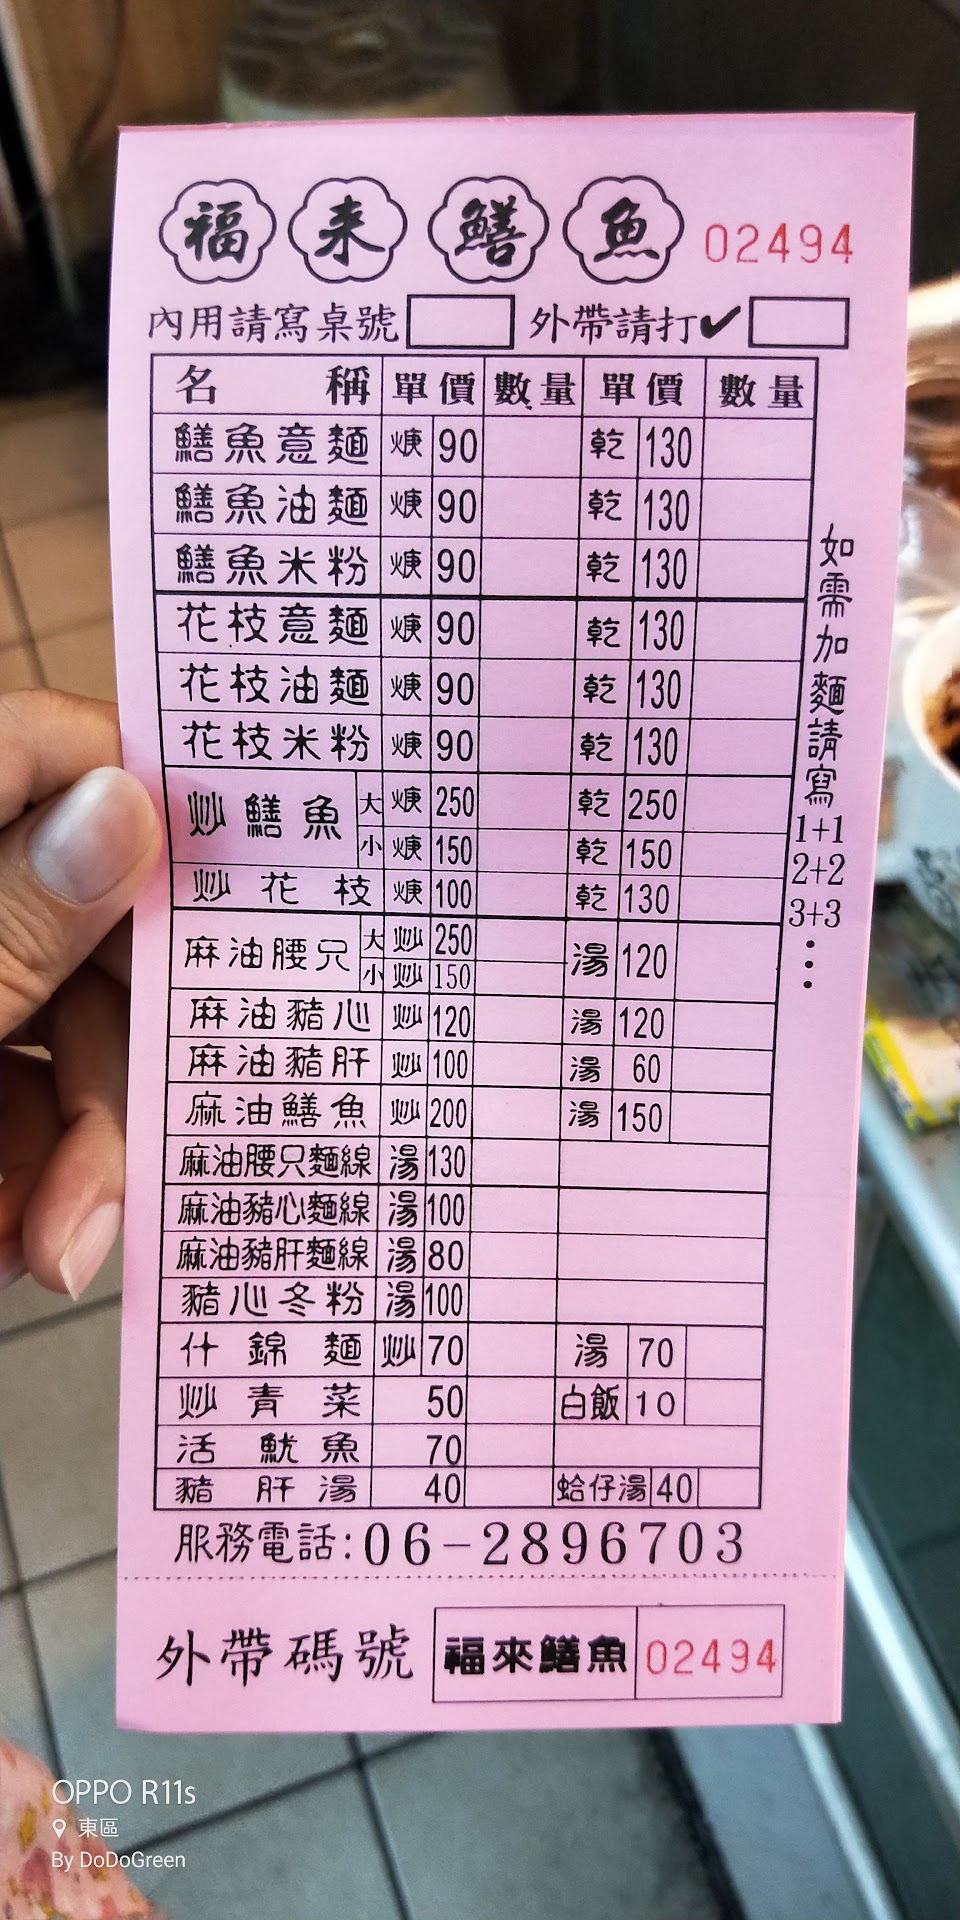 福來鱔魚 02494
內用請寫桌號 外帶請打✔
名稱 單價 數量 單價 數量
鱔魚意麵 焿 90 乾 130
鱔魚油麵 焿 90 乾 130
鱔魚米粉 焿 90 乾 130
花枝意麵 焿 90 乾 130
花枝油麵 焿 90 乾 130
花枝米粉 焿 90 乾 130
炒鱔魚 大 焿 250 乾 250
小 焿 150 乾 150
炒花枝 焿 100 乾 130
麻油腰只 大 炒 250 湯 120
小 炒 150
麻油豬心 炒 120 湯 120
麻油豬肝 炒 100 湯 60
麻油鱔魚 炒 200 湯 150
麻油腰只麵線 湯 130
麻油豬心麵線 湯 100
麻油豬肝麵線 湯 80
豬心冬粉 湯 100
什錦麵 炒 70 湯 70
炒青菜 50 白飯 10
活魷魚 70
豬肝湯 40 蛤仔湯 40
如需加麵請寫
1+1
2+2
3+3
⋮
服務電話:06-2896703
外帶碼號 福來鱔魚 02494
OPPO R11s
東區
By DoDoGreen